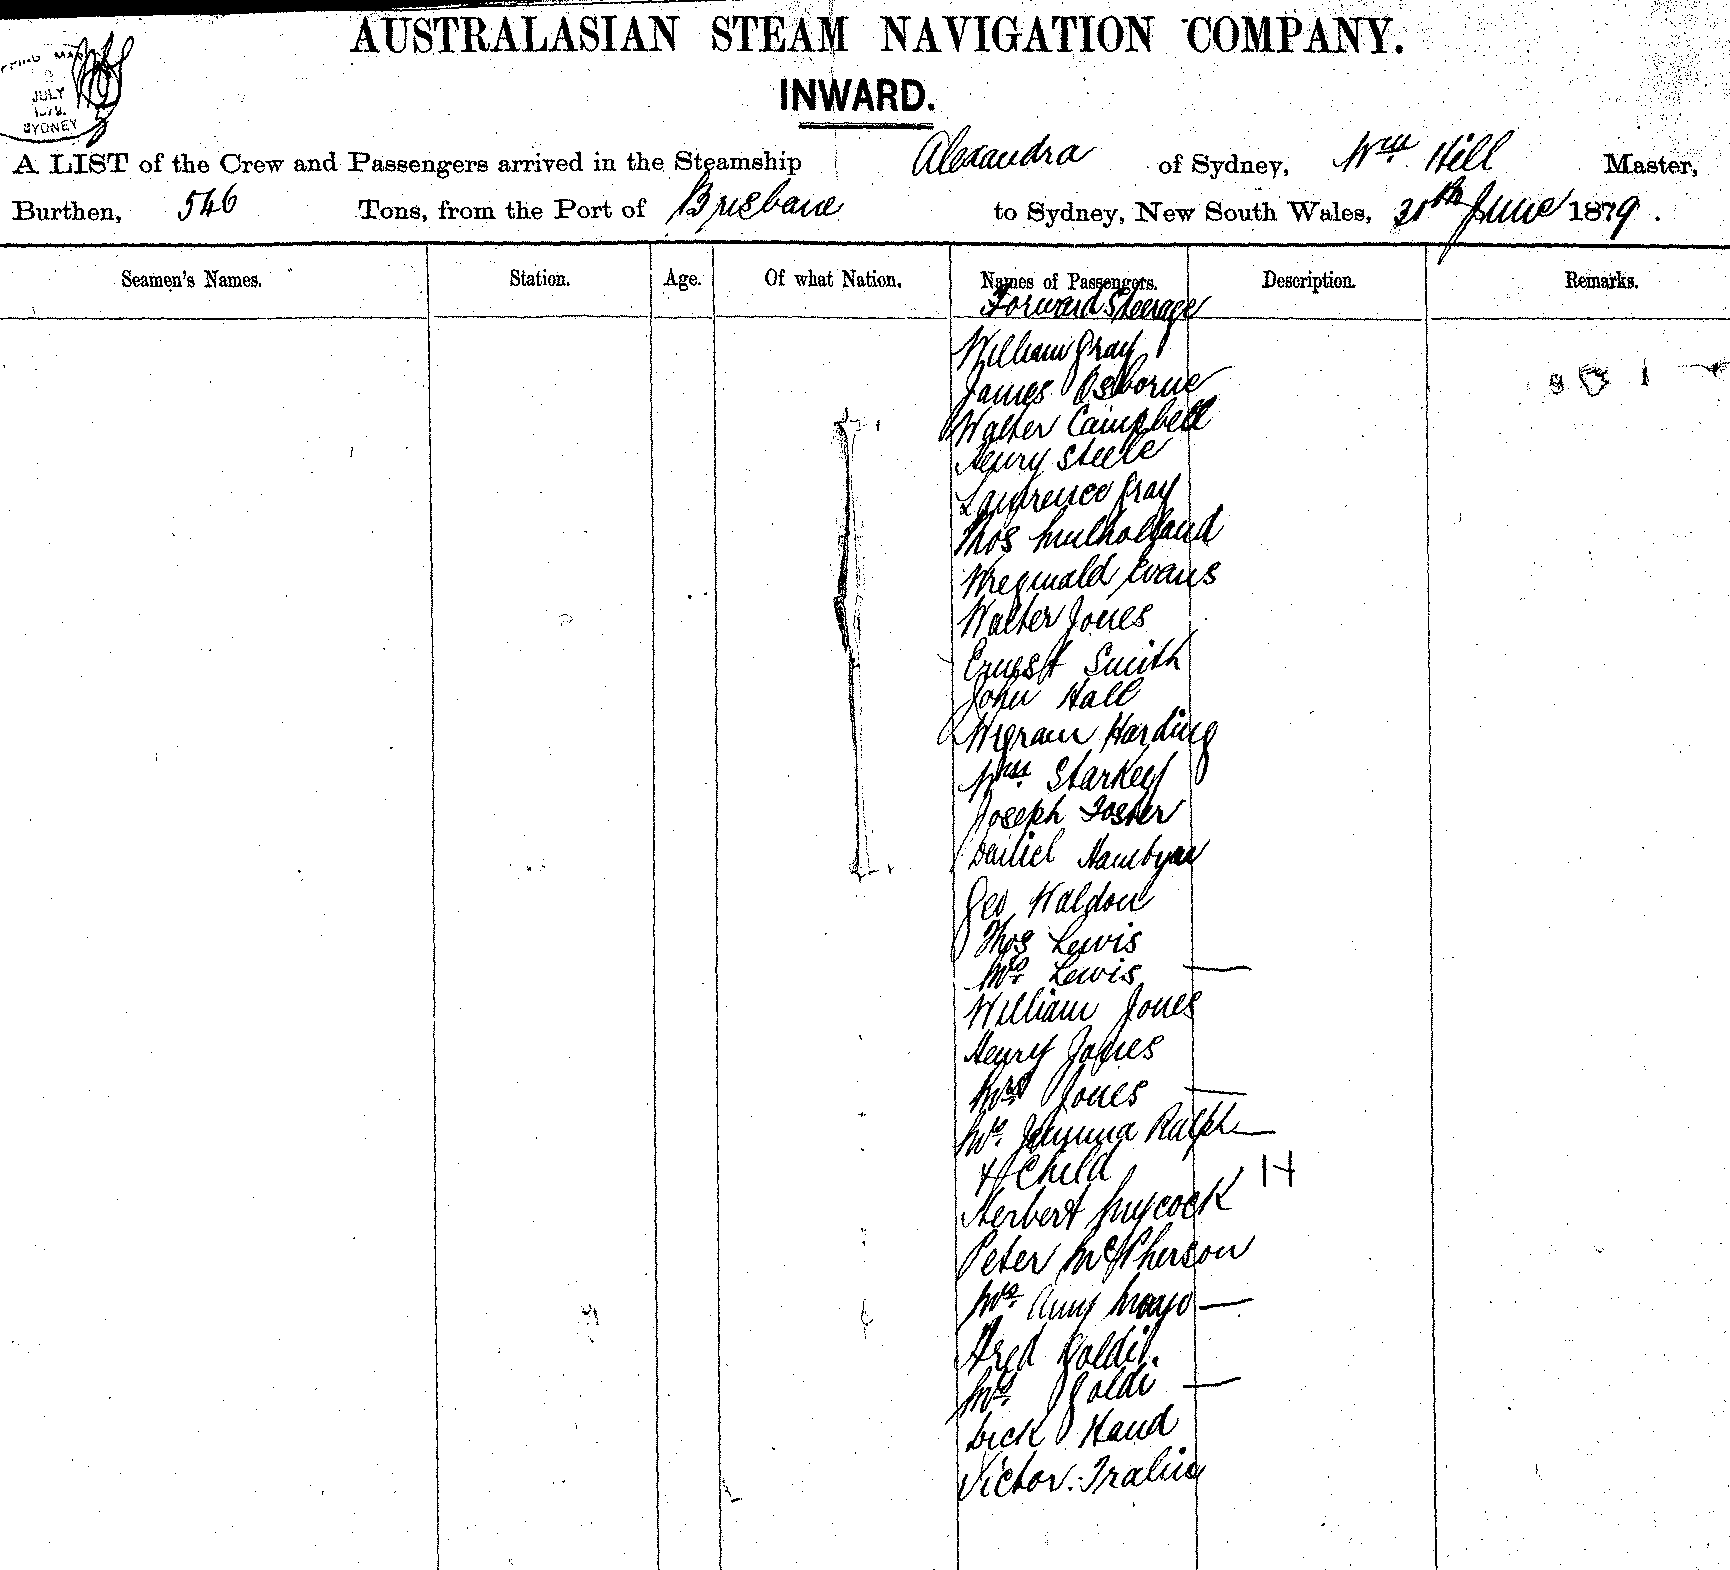 AUSTRALASIAN STEAM NAVIGATION COMPANY.
INWARD.
JULY
SYDNEY
A LIST of the Crew and Passengers arrived in the Steamship Alexandra of Sydney, Wm Hill Master,
Burthen, 546 Tons, from the Port of Brisbane to Sydney, New South Wales, 30th June 1879.
Seamen's Names. Station. Age. Of what Nation. Names of Passengers. Description. Remarks.
Forward Steerage
William Gray
James Osborne
Walter Campbell
Henry Steele
Lawrence Gray
Thos Mulholland
Evans
Walter Jones
Ernest Smith
John Hall
Wigram Harding
Wm Starkey
Joseph Foster
Daniel
Geo Waldon
Thos Lewis
Mrs Lewis —
William Jones
Henry Jones
Mrs Jones —
Mrs Jemima Ralph —
& Child
Herbert
Peter McPherson
Mrs Amy Mayo —
Fred Goldi
Mrs Goldi —
Dick Hand
Victor